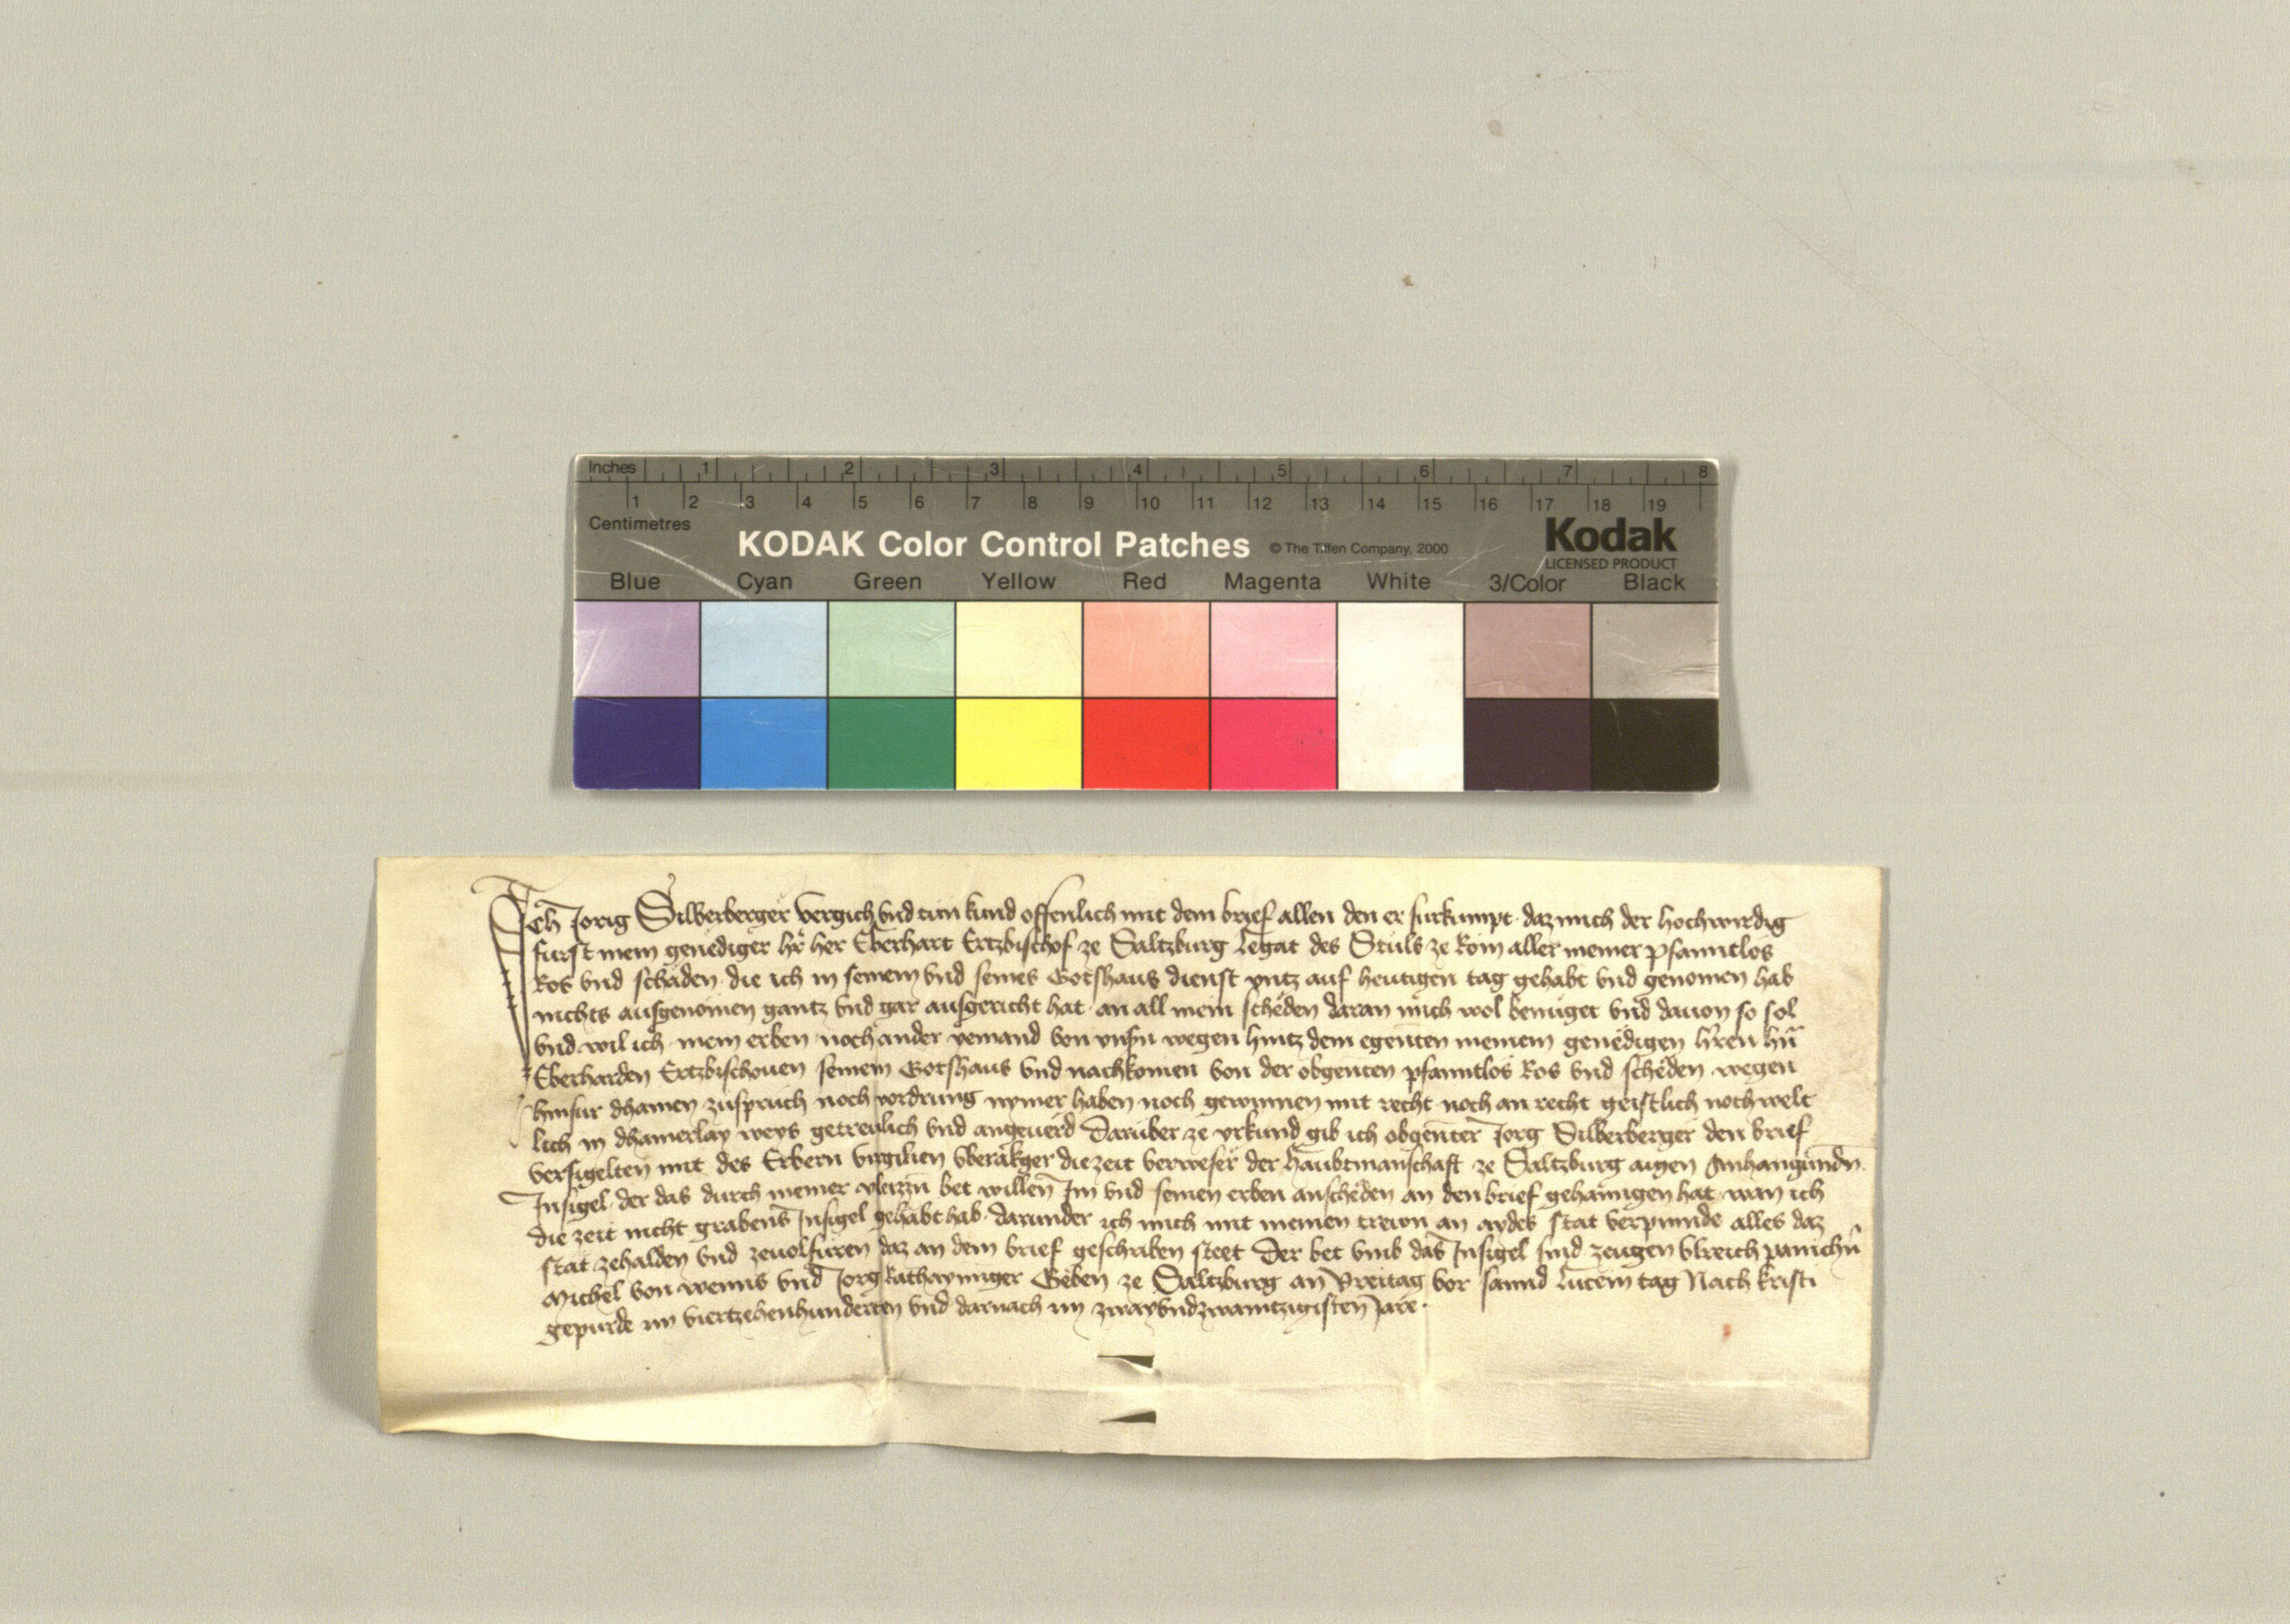 Inches 1 2 3 4 5 6 7 8
1 2 3 4 5 6 7 8 9 10 11 12 13 14 15 16 17 18 19
Centimetres
KODAK Color Control Patches © The Tiffen Company, 2000 Kodak
LICENSED PRODUCT
Blue Cyan Green Yellow Red Magenta White 3/Color Black
Ich Jorig Silberberger vergich vnd tun kund offenlich mit dem brief allen den er furkumpt · daz mich der hochwirdig
furst mein genediger hr̄ her Eberhart Ertzbischof ze Saltzburg Legat des Stuls ze Rom aller meiner pfanntlos
Ros vnd schäden · die ich in seinem vnd seines Gotshaus dienst vntz auf heutigen tag gehabt vnd genomen hab
nichts ausgenomen gantz vnd gar ausgericht hat · an all mein scheden daran mich wol benüget vnd dauon so sol
vnd wil ich mein erben noch ander yemand von vnsn wegen hintz dem egenten meinem genedigen hr̄ren hn̄
Eberharden Ertzbischouen seinem Gotshaus vnd nachkomen von der obgenten pfanntlos Ros vnd scheden wegen
hinfur dhainen zuspruch noch vordrung nymer haben noch gewinnen mit recht noch an recht geistlich noch welt
lich in dhainerlay weys getreulich vnd angeuerd Darüber ze vrkund gib ich obgenter Jorg Silberberger den brief
versigelten mit des Erbern virgilien Vberäkger die zeit verweser der haubtmanschaft ze Saltzburg aigen Anhangundn̄
Insigel · der das durch meiner vleizzn bet willen Im vnd seinen erben anscheden an den brief gehanngen hat · wan ich
die zeit nicht grabens Insigel gehabt hab · darunder ich mich mit meinen trewn an aydes stat verpinnde alles daz
stät zehalden vnd zeuolfuren daz an dem brief geschriben steet Der bet vmb das Insigel sind zeugen Vlreich panichn̄
Michel von wenns vnd Jorg Rathaymiger Geben ze Saltzburg an Vreitag vor sannd Lucein tag Nach kristi
gepurde im viertzehenhunderten vnd darnach im zwayvndzwaintzigisten Jare ·